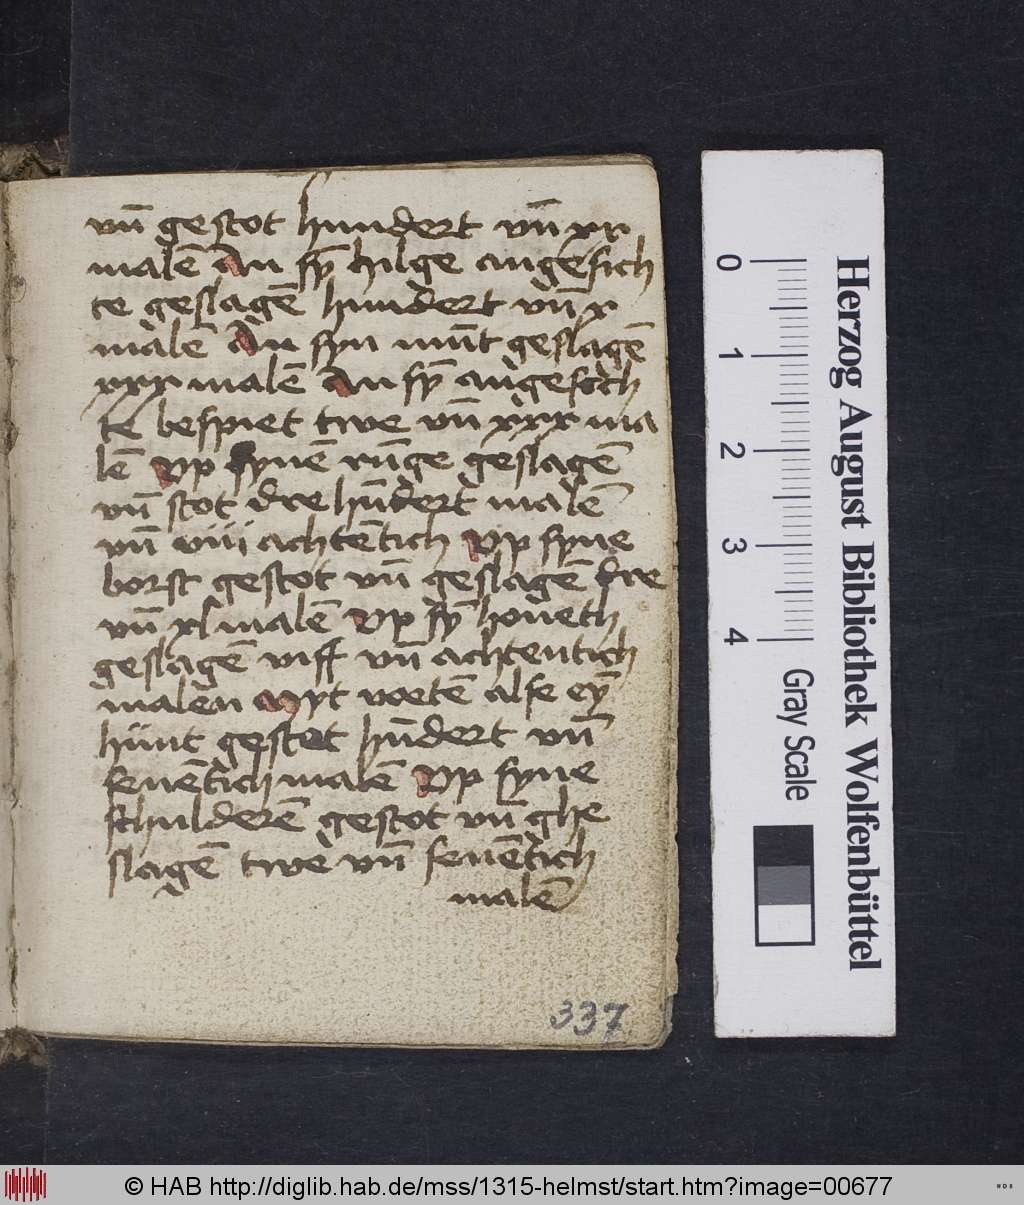 vn̄ gestot hundert vn̄ xx
malē An sȳ hilge angesich
te geslagē hundert vn̄ x
malē An syn mūt geslagē
xxx malē An sȳ angesich
te bespiet twe vn̄ xxx ma
lē Vp synē rūge geslagē
vn̄ stot dre hūdert malē
vn̄ viii achtētich Vp syne
borst gestot vn̄ geslagē dre
vn̄ xl malē Vp sȳ houeth
geslagē viff vn̄ achtentich
malen myt voetē alse eȳ
hunt gestot hūdert vn̄
seuētich malē Vp syne
schulderē gestot vn̄ ghe
slagē twe vn̄ seuētich
malē
337
Herzog August Bibliothek Wolfenbüttel
0 1 2 3 4 Gray Scale
© HAB http://diglib.hab.de/mss/1315-helmst/start.htm?image=00677